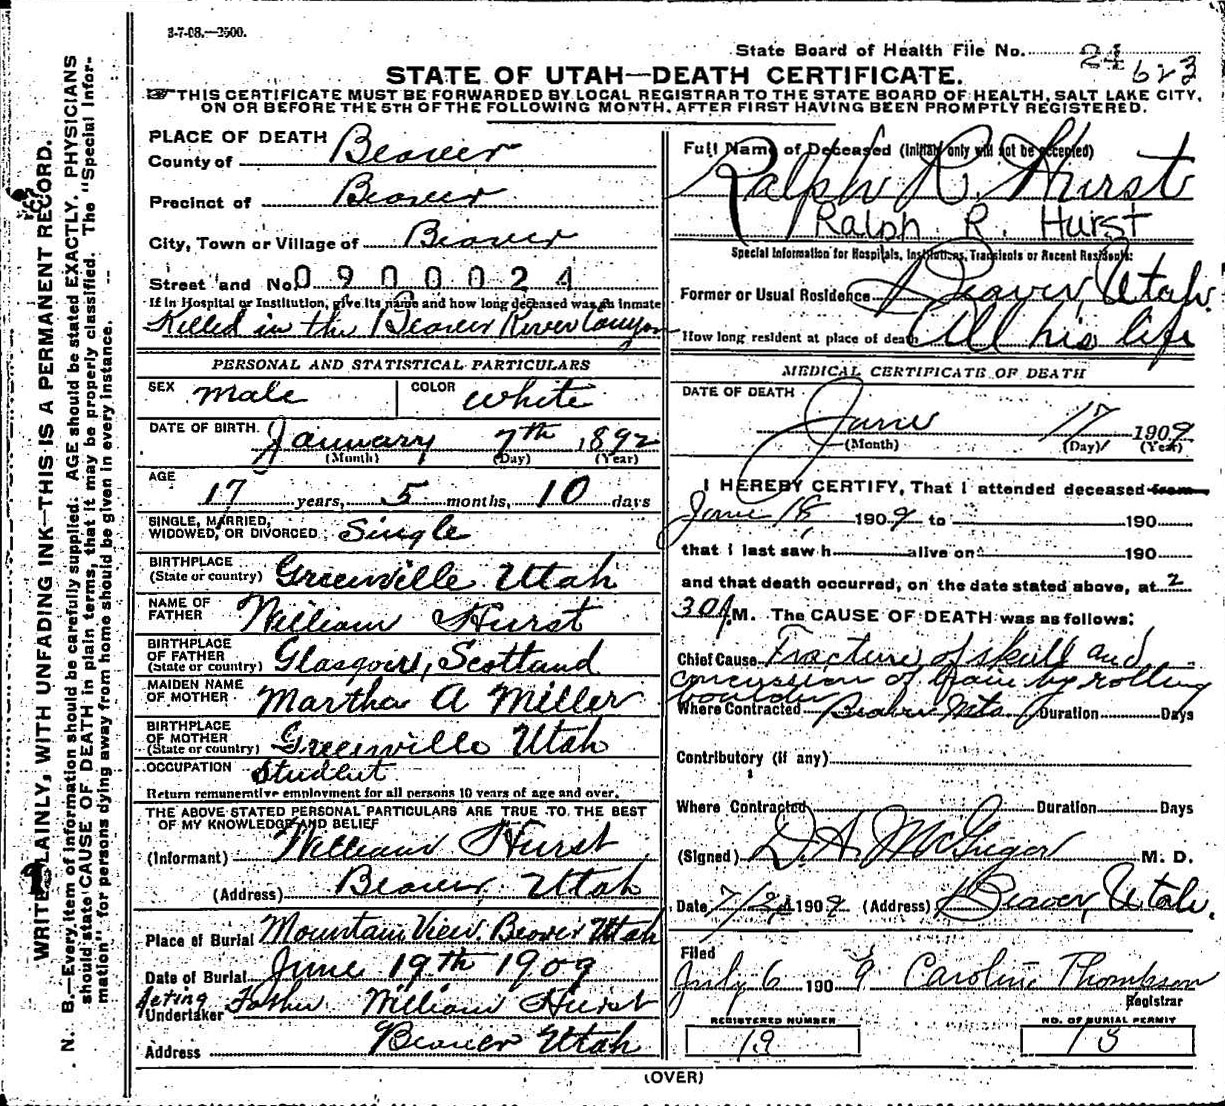 3-7-08.—2500.
State Board of Health File No. 24 623
STATE OF UTAH—DEATH CERTIFICATE.
☞THIS CERTIFICATE MUST BE FORWARDED BY LOCAL REGISTRAR TO THE STATE BOARD OF HEALTH, SALT LAKE CITY,
ON OR BEFORE THE 5TH OF THE FOLLOWING MONTH, AFTER FIRST HAVING BEEN PROMPTLY REGISTERED.
WRITE PLAINLY, WITH UNFADING INK—THIS IS A PERMANENT RECORD.
N. B.—Every item of information should be carefully supplied. AGE should be stated EXACTLY. PHYSICIANS
should state CAUSE OF DEATH in plain terms, that it may be properly classified. The "Special Infor-
mation" for persons dying away from home should be given in every instance.
PLACE OF DEATH
County of Beaver
Precinct of Beaver
City, Town or Village of Beaver
Street and No. 0900024
If in Hospital or Institution, give its name and how long deceased was an inmate
Killed in the Beaver River Canyon
PERSONAL AND STATISTICAL PARTICULARS
SEX male COLOR white
DATE OF BIRTH. January 7th, 1892
(Month) (Day) (Year)
AGE 17 years, 5 months, 10 days
SINGLE, MARRIED,
WIDOWED, OR DIVORCED Single
BIRTHPLACE
(State or country) Greenville Utah
NAME OF
FATHER William Hurst
BIRTHPLACE
OF FATHER
(State or country) Glasgow, Scotland
MAIDEN NAME
OF MOTHER Martha A Miller
BIRTHPLACE
OF MOTHER
(State or country) Greenville Utah
OCCUPATION Student
Return remunerative employment for all persons 10 years of age and over.
THE ABOVE STATED PERSONAL PARTICULARS ARE TRUE TO THE BEST
OF MY KNOWLEDGE AND BELIEF
(Informant) William Hurst
(Address) Beaver, Utah
Place of Burial Mountain View, Beaver Utah
Date of Burial June 19th 1909
Acting
Undertaker Father William Hurst
Address Beaver Utah
Full Name of Deceased (Initials only will not be accepted)
Ralph R. Hurst
Ralph R. Hurst
Special Information for Hospitals, Institutions, Transients or Recent Residents:
Former or Usual Residence Beaver, Utah.
How long resident at place of death All his life
MEDICAL CERTIFICATE OF DEATH
DATE OF DEATH
June 17 1909
(Month) (Day) (Year)
I HEREBY CERTIFY, That I attended deceased from
June 18 1909 to 190
that I last saw h alive on 190
and that death occurred, on the date stated above, at 2
30 M. The CAUSE OF DEATH was as follows:
Chief Cause Fracture of skull and
concussion of brain by rolling
boulder
Where Contracted Beaver Mts Duration Days
Contributory (if any)
Where Contracted Duration Days
(Signed) D. A. McGregor M. D.
Date 1909 (Address) Beaver, Utah.
Filed
July 6 1909 Caroline Thompson
Registrar
REGISTERED NUMBER NO. OF BURIAL PERMIT
13 13
(OVER)